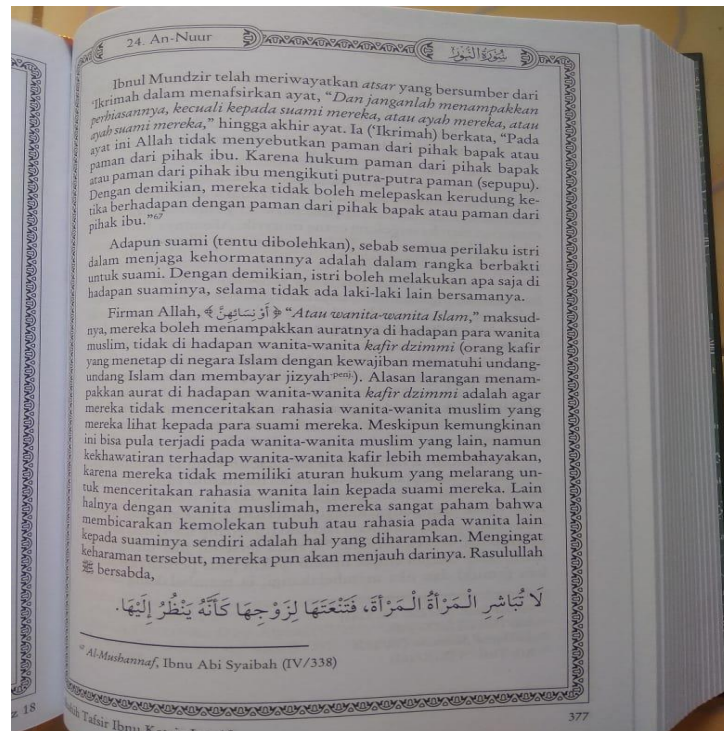 24. An-Nuur
سُورَةُ النُّورِ
Ibnul Mundzir telah meriwayatkan atsar yang bersumber dari
'Ikrimah dalam menafsirkan ayat, “Dan janganlah menampakkan
perhiasannya, kecuali kepada suami mereka, atau ayah mereka, atau
ayah suami mereka,” hingga akhir ayat. Ia (‘Ikrimah) berkata, “Pada
ayat ini Allah tidak menyebutkan paman dari pihak bapak atau
paman dari pihak ibu. Karena hukum paman dari pihak bapak
atau paman dari pihak ibu mengikuti putra-putra paman (sepupu).
Dengan demikian, mereka tidak boleh melepaskan kerudung ke-
tika berhadapan dengan paman dari pihak bapak atau paman dari
pihak ibu.”67
Adapun suami (tentu dibolehkan), sebab semua perilaku istri
dalam menjaga kehormatannya adalah dalam rangka berbakti
untuk suami. Dengan demikian, istri boleh melakukan apa saja di
hadapan suaminya, selama tidak ada laki-laki lain bersamanya.
Firman Allah, ﴾ أَوْ نِسَائِهِنَّ ﴿ “Atau wanita-wanita Islam,” maksud-
nya, mereka boleh menampakkan auratnya di hadapan para wanita
muslim, tidak di hadapan wanita-wanita kafir dzimmi (orang kafir
yang menetap di negara Islam dengan kewajiban mematuhi undang-
undang Islam dan membayar jizyah-penj.). Alasan larangan menam-
pakkan aurat di hadapan wanita-wanita kafir dzimmi adalah agar
mereka tidak menceritakan rahasia wanita-wanita muslim yang
mereka lihat kepada para suami mereka. Meskipun kemungkinan
ini bisa pula terjadi pada wanita-wanita muslim yang lain, namun
kekhawatiran terhadap wanita-wanita kafir lebih membahayakan,
karena mereka tidak memiliki aturan hukum yang melarang un-
tuk menceritakan rahasia wanita lain kepada suami mereka. Lain
halnya dengan wanita muslimah, mereka sangat paham bahwa
membicarakan kemolekan tubuh atau rahasia pada wanita lain
kepada suaminya sendiri adalah hal yang diharamkan. Mengingat
keharaman tersebut, mereka pun akan menjauh darinya. Rasulullah
ﷺ bersabda,
لَا تُبَاشِرِ الْمَرْأَةُ الْمَرْأَةَ، فَتَنْعَتَهَا لِزَوْجِهَا كَأَنَّهُ يَنْظُرُ إِلَيْهَا.
67 Al-Mushannaf, Ibnu Abi Syaibah (IV/338)
377
z 18
Tafsir Ibnu